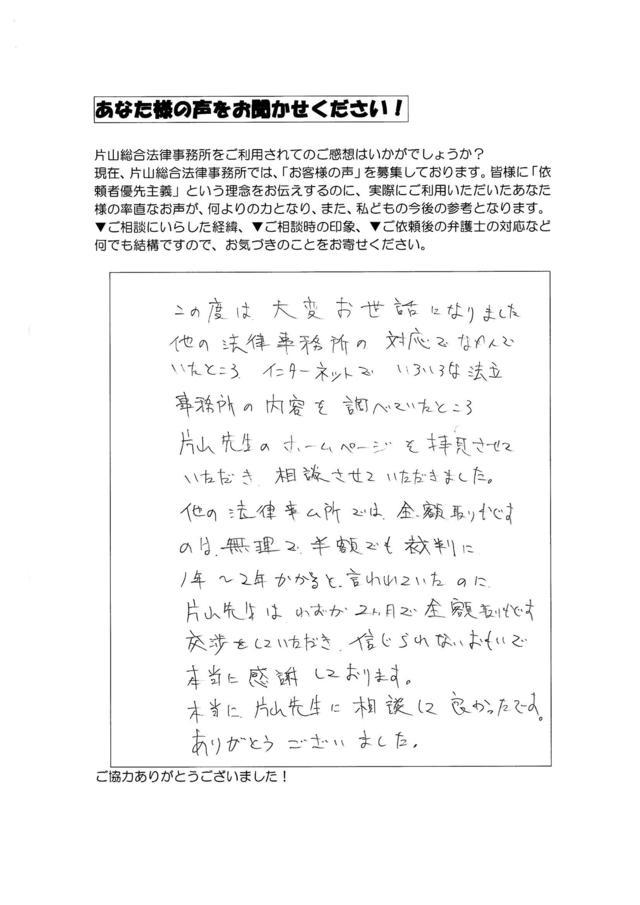 あなた様の声をお聞かせください！
片山総合法律事務所をご利用されてのご感想はいかがでしょうか？
現在、片山総合法律事務所では、「お客様の声」を募集しております。皆様に「依
頼者優先主義」という理念をお伝えするのに、実際にご利用いただいたあなた
様の率直なお声が、何よりの力となり、また、私どもの今後の参考となります。
▼ご相談にいらした経緯、▼ご相談時の印象、▼ご依頼後の弁護士の対応など
何でも結構ですので、お気づきのことをお寄せください。
この度は 大変お世話になりました
他の法律事務所の対応でなやんで
いたところ インターネットで いろいろな法立
事務所の内容を調べていたところ
片山先生のホームページを拝見させて
いただき 相談させていただきました。
他の法律事ム所では、全額取りもどす
のは、無理で、半額でも裁判に
1年〜2年かかると、言われていたのに
片山先生は わずか2ヵ月で全額取りもどす
交渉をしていただき 信じられないおもいで
本当に感謝しております。
本当に、片山先生に相談して良かったです。
ありがとうございました。
ご協力ありがとうございました！